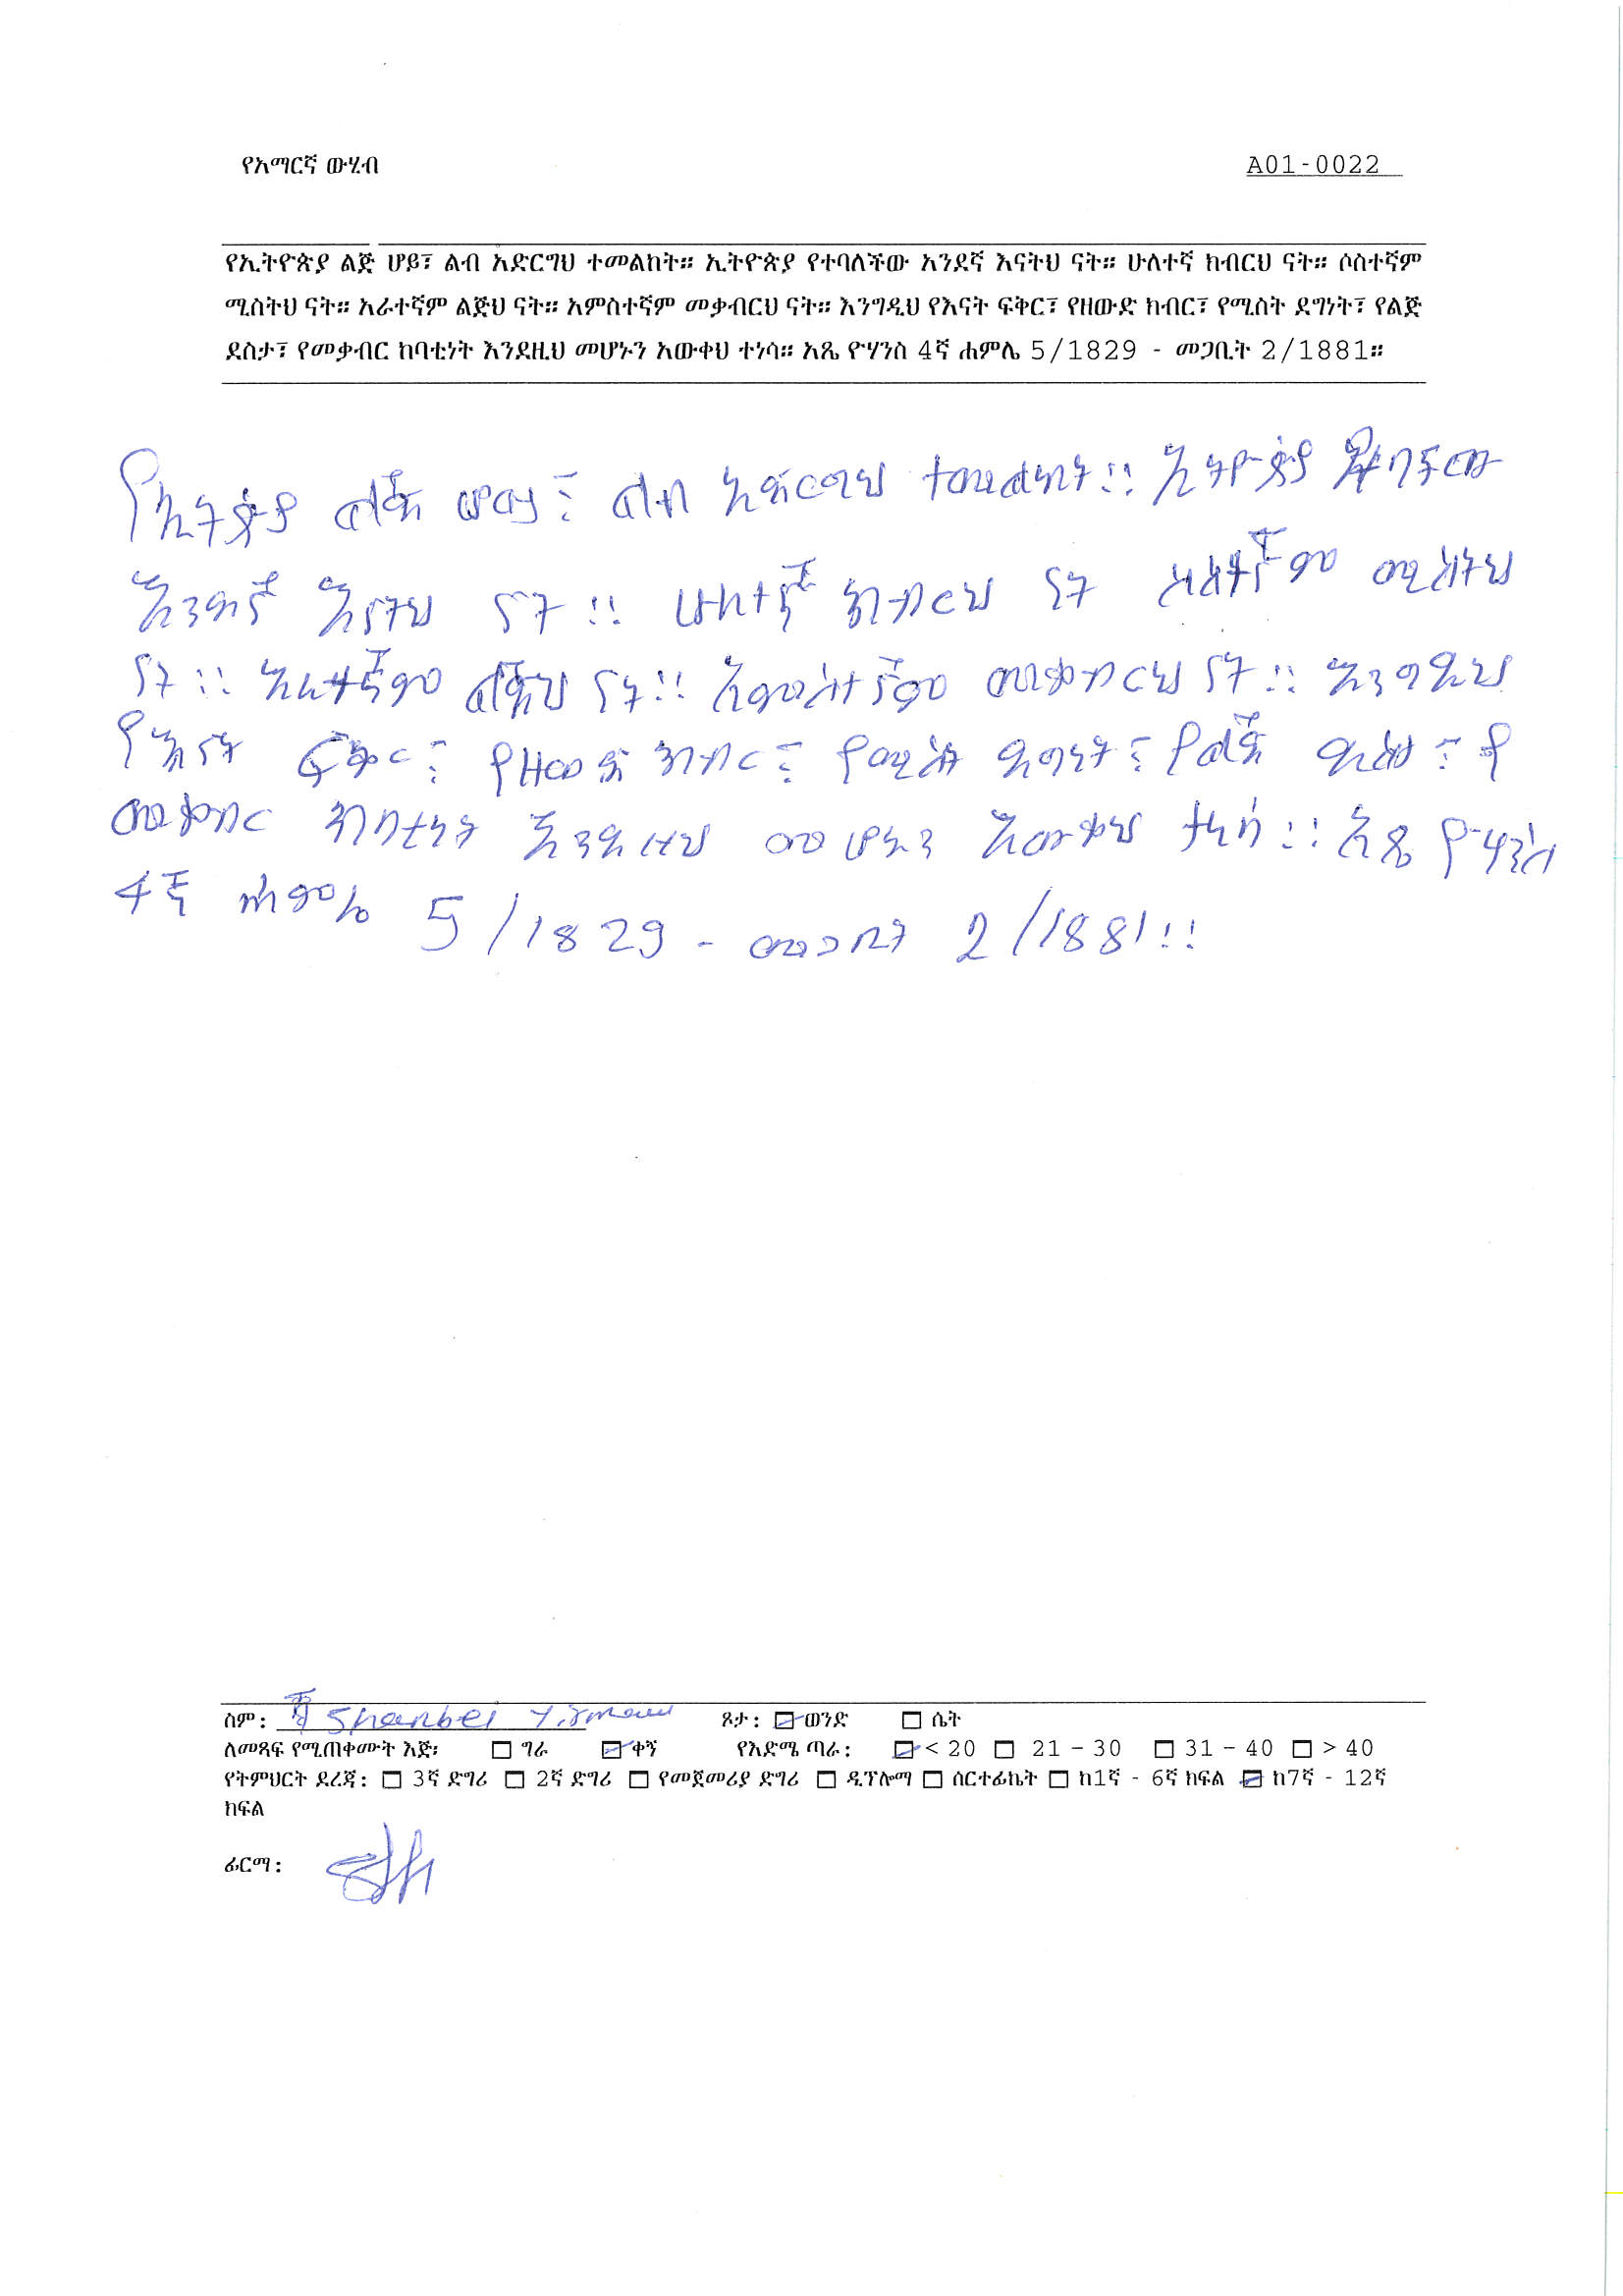 የአማርኛ ውሂብ
A01-0022
የኢትዮጵያ ልጅ ሆይ፣ ልብ አድርግህ ተመልከት። ኢትዮጵያ የተባለችው አንደኛ እናትህ ናት። ሁለተኛ ክብርህ ናት። ሶስተኛም
ሚስትህ ናት። አራተኛም ልጅህ ናት። አምስተኛም መቃብርህ ናት። እንግዲህ የእናት ፍቅር፣ የዘውድ ክብር፣ የሚስት ደግነት፣ የልጅ
ደስታ፣ የመቃብር ከባቲነት እንደዚህ መሆኑን አውቀህ ተነሳ። አጼ ዮሃንስ 4ኛ ሐምሌ 5/1829 - መጋቢት 2/1881።
የኢትዮጵያ ልጅ ሆይ፣ ልብ አድርግህ ተመልከት። ኢትዮጵያ
አንደኛ እናትህ ናት። ሁለተኛ ክብርህ ናት ሶስተኛም ሚስትህ
ናት። አራተኛም ልጅህ ናት። አምስተኛም መቃብርህ ናት። እንግዲህ
የእናት ፍቅር፣ የዘውድ ክብር፣ የሚስት ደግነት፣ የልጅ ደስታ፣ የ
መቃብር ከባቲነት እንደዚህ መሆኑን አውቀህ ተነሳ። አጼ ዮሃንስ
4ኛ ሐምሌ 5/1829 - መጋቢት 2/1881።
ስም: Shanbel Yirmaw ጾታ: ወንድ ሴት
ለመጻፍ የሚጠቀሙት እጅ፡ ግራ ቀኝ የእድሜ ጣራ: < 20 21 – 30 31 – 40 > 40
የትምህርት ደረጃ: 3ኛ ድግሪ 2ኛ ድግሪ የመጀመሪያ ድግሪ ዲፕሎማ ሰርተፊኬት ከ1ኛ - 6ኛ ክፍል ከ7ኛ - 12ኛ
ክፍል
ፊርማ: